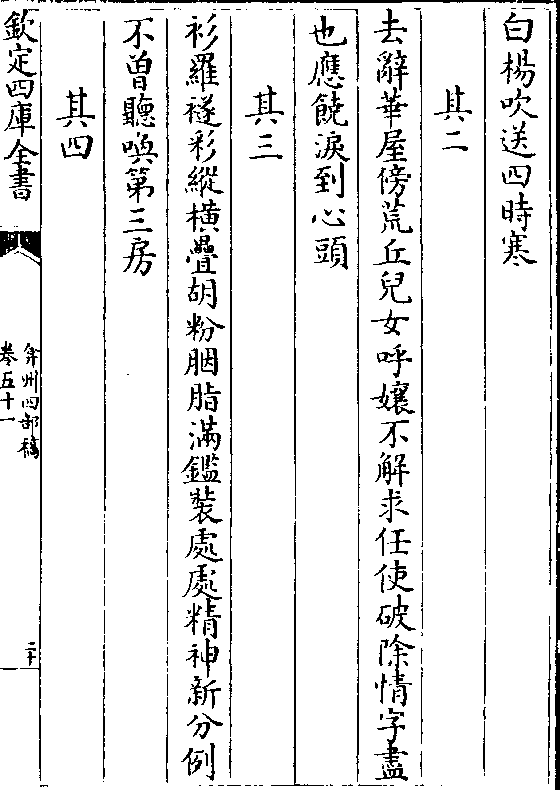 白楊吹送四時寒
其二
去辭華屋傍荒丘兒女呼孃不解求任使破除情字盡
也應饒淚到心頭
其三
衫羅襚彩縱橫疊胡粉胭脂滿鑑裝處處精神新分例
不曾聽喚第三房
其四
欽定四庫全書
弇州四部稿
卷五十一
二十